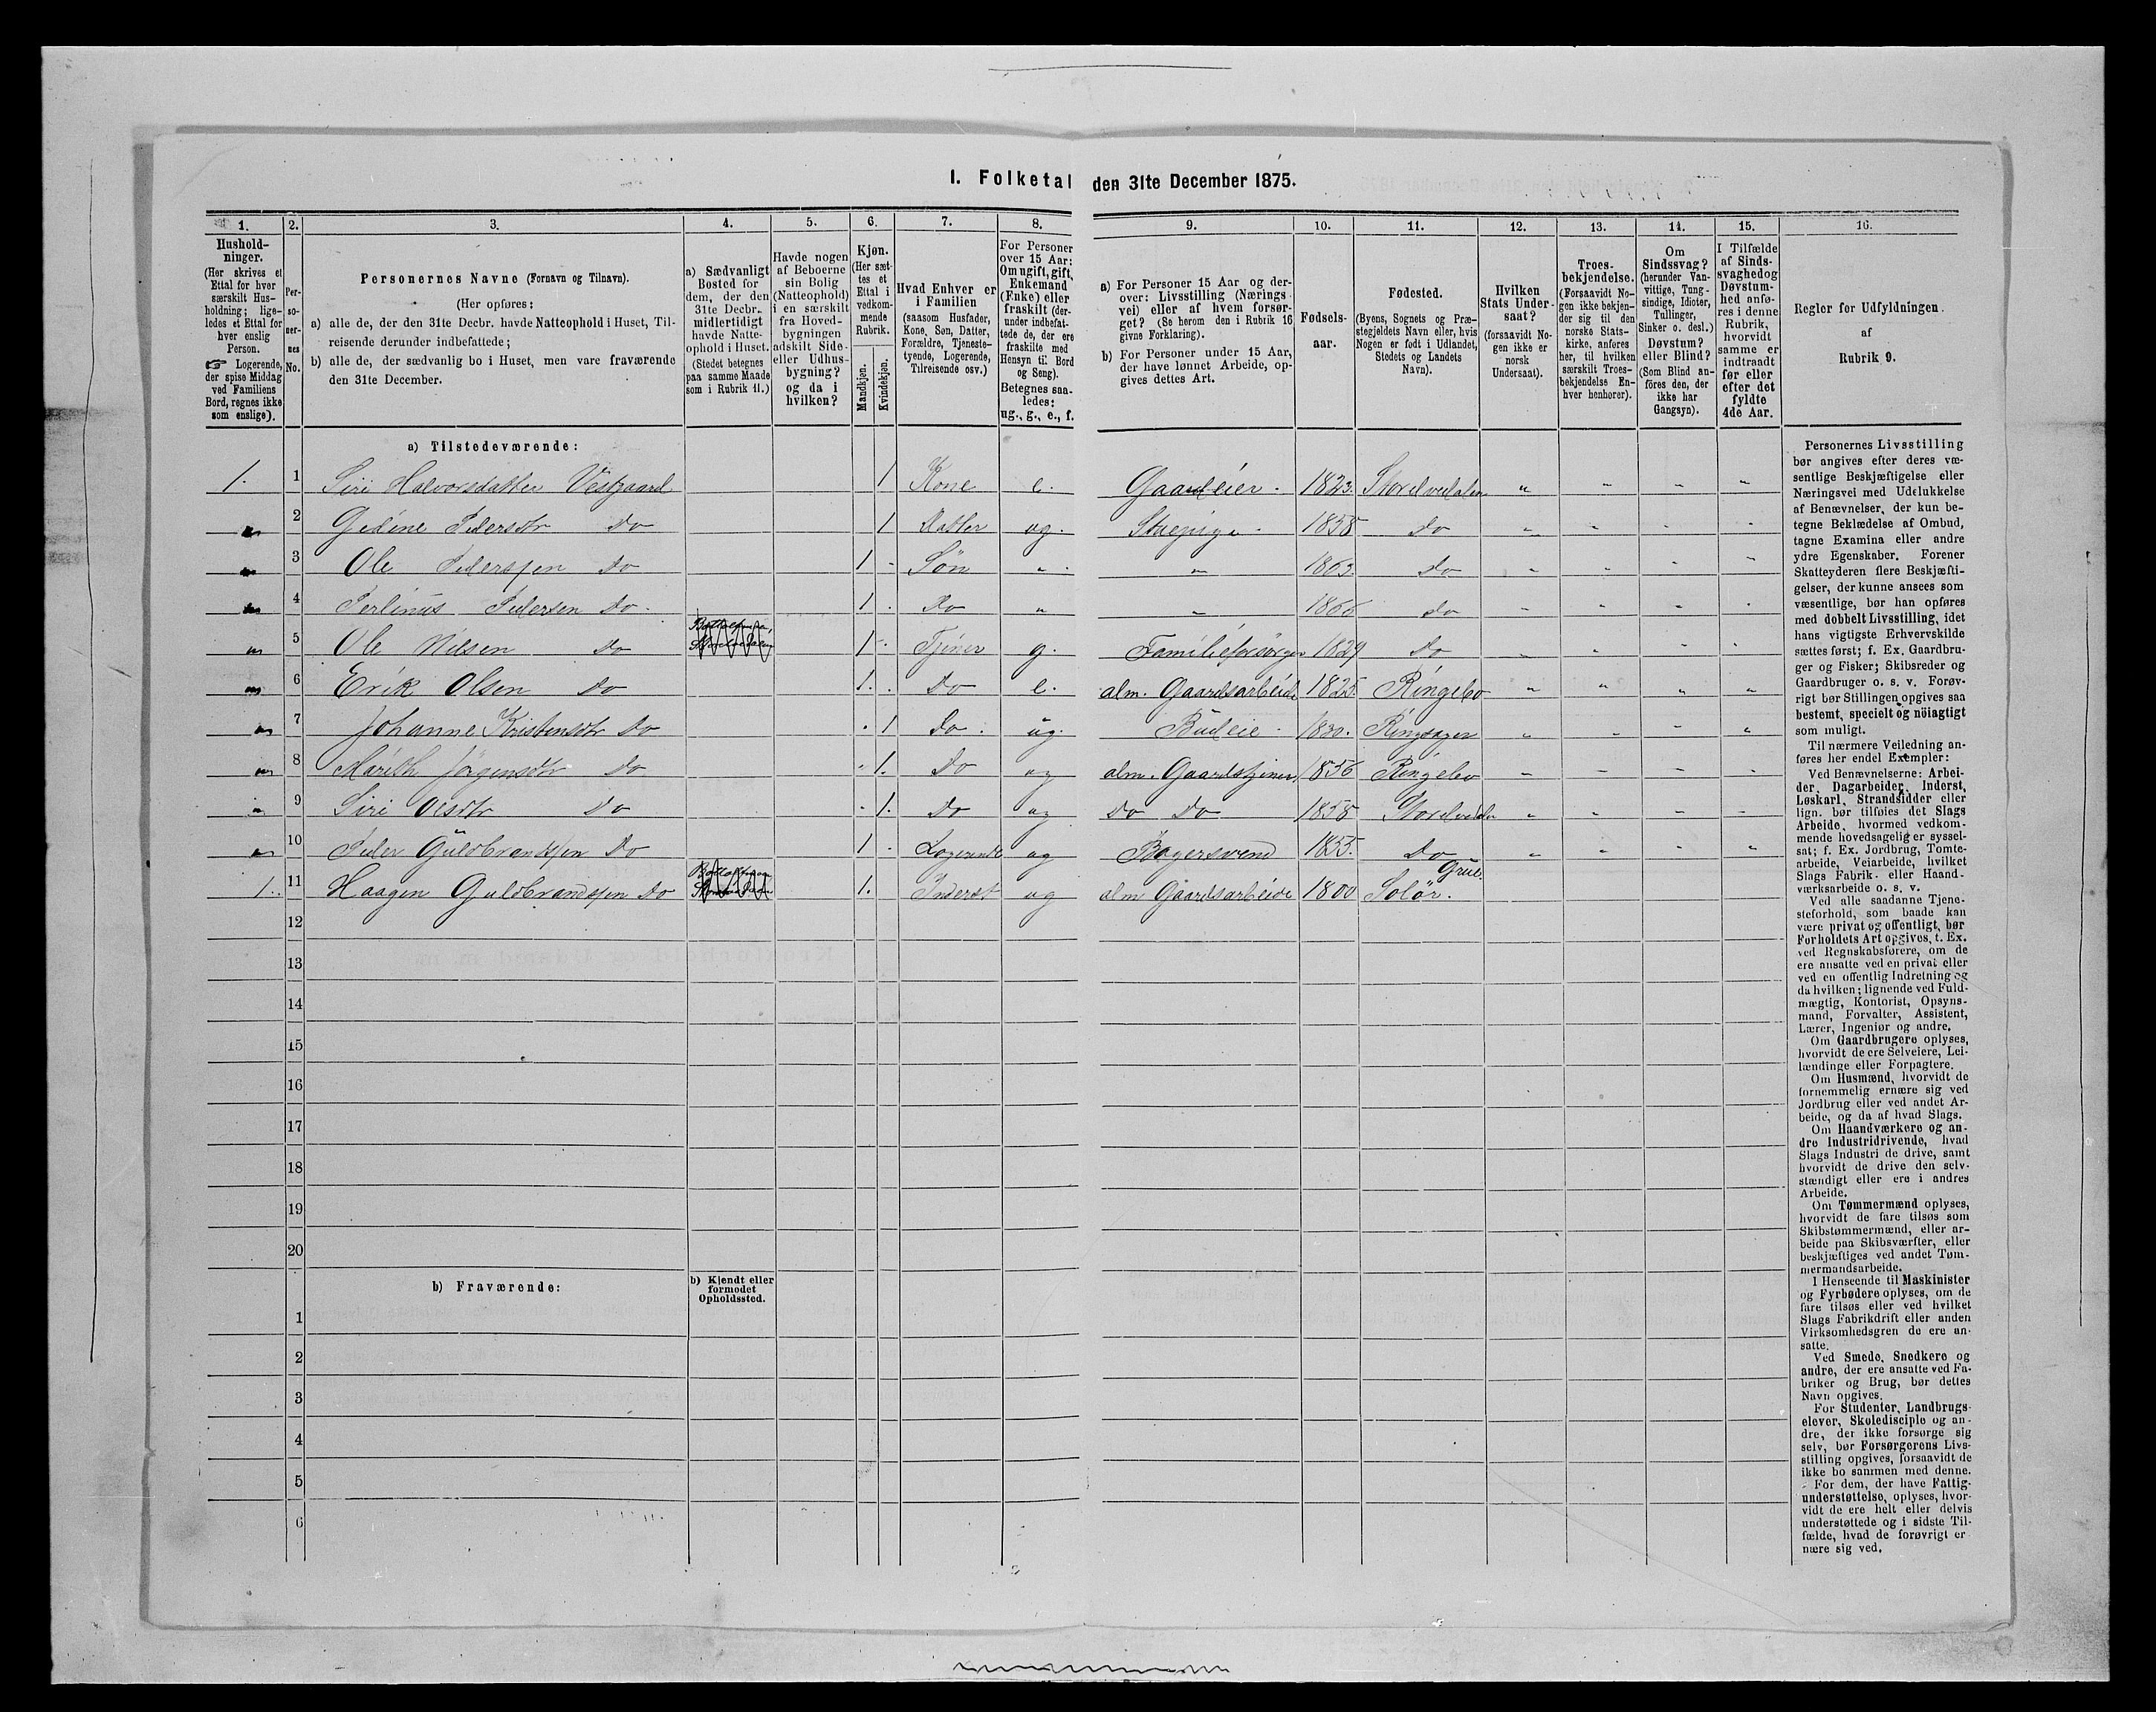 I. Folketal den 31te December 1875.
1. 2. 3. 4. 5. 6. 7. 8. 9. 10. 11. 12. 13. 14. 15. 16.
Hushold-
ninger.
(Her skrives et
Ettal for hver
særskilt Hus-
holdning; lige-
ledes et Ettal for
hver enslig
Person.
☞ Logerende,
der spise Middag
ved Familiens
Bord, regnes ikke
som enslige).
Per-
so-
ner-
nes
No.
Personernes Navne (Fornavn og Tilnavn).
(Her opføres:
a) alle de, der den 31te Decbr. havde Natteophold i Huset, Til-
reisende derunder indbefattede;
b) alle de, der sædvanlig bo i Huset, men vare fraværende
den 31te December.
a) Sædvanligt
Bosted for
dem, der den
31te Decbr.
midlertidigt
havde Natte-
ophold i Huset.
(Stedet betegnes
paa samme Maade
som i Rubrik 11.)
Havde nogen
af Beboerne
sin Bolig
(Natteophold)
i en særskilt
fra Hoved-
bygningen
adskilt Side-
eller Udhus-
bygning?
og da i
hvilken?
Kjøn.
(Her sæt-
tes et
Ettal i
vedkom-
mende
Rubrik.
Mandkjøn.
Kvindekjøn.
Hvad Enhver er
i Familien
(saasom Husfader,
Kone, Søn, Datter,
Forældre, Tjeneste-
tyende, Logerende,
Tilreisende osv.)
For Personer
over 15 Aar:
Om ugift, gift,
Enkemand
(Enke) eller
fraskilt (der-
under indbefat-
tede de, der ere
fraskilte med
Hensyn til Bord
og Seng).
Betegnes saa-
ledes:
ug., g., e., f.
a) For Personer 15 Aar og der-
over: Livsstilling (Nærings-
vei) eller af hvem forsør-
get? (Se herom den i Rubrik 16
givne Forklaring).
b) For Personer under 15 Aar,
der have lønnet Arbeide, op-
gives dettes Art.
Fødsels-
aar.
Fødested.
(Byens, Sognets og Præ-
stegjeldets Navn eller, hvis
Nogen er født i Udlandet,
Stedets og Landets
Navn).
Hvilken
Stats Under-
saat?
(forsaavidt No-
gen ikke er
norsk
Undersaat).
Troes-
bekjendelse.
(Forsaavidt No-
gen ikke bekjen-
der sig til den
norske Stats-
kirke, anføres
her, til hvilken
særskilt Troes-
bekjendelse En-
hver henhører).
Om
Sindssvag?
(herunder Van-
vittige, Tung-
sindige, Idioter,
Tullinger,
Sinker o. desl.)
Døvstum?
eller Blind?
(Som Blind an-
føres den, der
ikke har
Gangsyn).
I Tilfælde
af Sinds-
svaghed og
Døvstum-
hed anfø-
res i denne
Rubrik,
hvorvidt
samme er
indtraadt
før eller
efter det
fyldte
4de Aar.
Regler for Udfyldningen
af
Rubrik 9.
a) Tilstedeværende:
1. 1 Siri Halvorsdatter Vestgaard 1 Kone e. Gaardeier. 1823. Storelvedalen " " " "
" 2 Gedine Pedersdtr Do 1 Datter ug. Stuepige. 1858 Do " " " "
" 3 Ole Pederssen Do 1 Søn " " 1863 Do " " " "
" 4 Perlinus Pedersen Do. 1 Do " " 1866 Do " " " "
" 5 Ole Nilsen Do 1 Tjener g. Familieforsørger 1829 Do " " " "
" 6 Erik Olsen Do 1. Do e. alm. Gaardsarbeide 1825 Ringebo " " " "
" 7 Johanne Kristensdtr Do 1 Do. ug. Budeie 1830. Ringsager " " " "
" 8 Marith Jørgensdtr Do 1. Do ug alm. Gaardstjener 1856 Ringebo " " " "
" 9 Siri Olsdtr Do 1. Do ug Do Do 1858 Storelvedalen " " " "
" 10 Peder Guldbrandssen Do 1 Logerende ug Bagersvend 1855. Do " " " "
1. 11 Haagen Guldbrandssen Do 1. Inderst ug alm Gaardsarbeide 1800 Grue Solør.
12
13
14
15
16
17
18
19
20
b) Fraværende:
b) Kjendt eller
formodet
Opholdssted.
1
2
3
4
5
6
Personernes Livsstilling
bør angives efter deres væ-
sentlige Beskjæftigelse eller
Næringsvei med Udelukkelse
af Benævnelser, der kun be-
tegne Beklædelse af Ombud,
tagne Examina eller andre
ydre Egenskaber. Forener
Skatteyderen flere Beskjæfti-
gelser, der kunne ansees som
væsentlige, bør han opføres
med dobbelt Livsstilling, idet
hans vigtigste Erhvervskilde
sættes først; f. Ex. Gaardbru-
ger og Fisker; Skibsreder og
Gaardbruger o. s. v. Forøv-
rigt bør Stillingen opgives saa
bestemt, specielt og nöiagtigt
som muligt.
Til nærmere Veiledning an-
føres her endel Exempler:
Ved Benævnelserne: Arbei-
der, Dagarbeider, Inderst,
Løskarl, Strandsidder eller
lign. bør tilføies det Slags
Arbeide, hvormed vedkom-
mende hovedsagelig er syssel-
sat; f. Ex. Jordbrug, Tomte-
arbeide, Veiarbeide, hvilket
Slags Fabrik- eller Haand-
værksarbeide o. s. v.
Ved alle saadanne Tjene-
steforhold, som baade kan
være privat og offentligt, bør
Forholdets Art opgives, t. Ex.
ved Regnskabsførere, om de
ere ansatte ved en privat eller
ved en offentlig Indretning og
da hvilken; lignende ved Fuld-
mægtig, Kontorist, Opsyns-
mand, Forvalter, Assistent,
Lærer, Ingeniør og andre.
Om Gaardbrugere oplyses,
hvorvidt de ere Selveiere, Lei-
lændinge eller Forpagtere.
Om Husmænd, hvorvidt de
fornemmelig ernære sig ved
Jordbrug eller ved andet Ar-
beide, og da af hvad Slags.
Om Haandværkere og an-
dre Industridrivende, hvad
Slags Industri de drive, samt
hvorvidt de drive den selv-
stændigt eller ere i andres
Arbeide.
Om Tømmermænd oplyses,
hvorvidt de fare tilsøs som
Skibstømmermænd, eller ar-
beide paa Skibsværfter, eller
beskjæftiges ved andet Tøm-
mermandsarbeide.
I Henseende til Maskinister
og Fyrbødere oplyses, om de
fare tilsøs eller ved hvilket
Slags Fabrikdrift eller anden
Virksomhedsgren de ere an-
satte.
Ved Smede, Snedkere og
andre, der ere ansatte ved Fa-
briker og Brug, bør dettes
Navn opgives.
For Studenter, Landbrugs-
elever, Skoledisciple og an-
dre, der ikke forsørge sig
selv, bør Forsørgerens Livs-
stilling opgives, forsaavidt de
ikke bo sammen med denne.
For dem, der have Fattig-
understøttelse, oplyses, hvor-
vidt de ere helt eller delvis
understøttede og i sidste Til-
fælde, hvad de forøvrigt er-
nære sig ved.